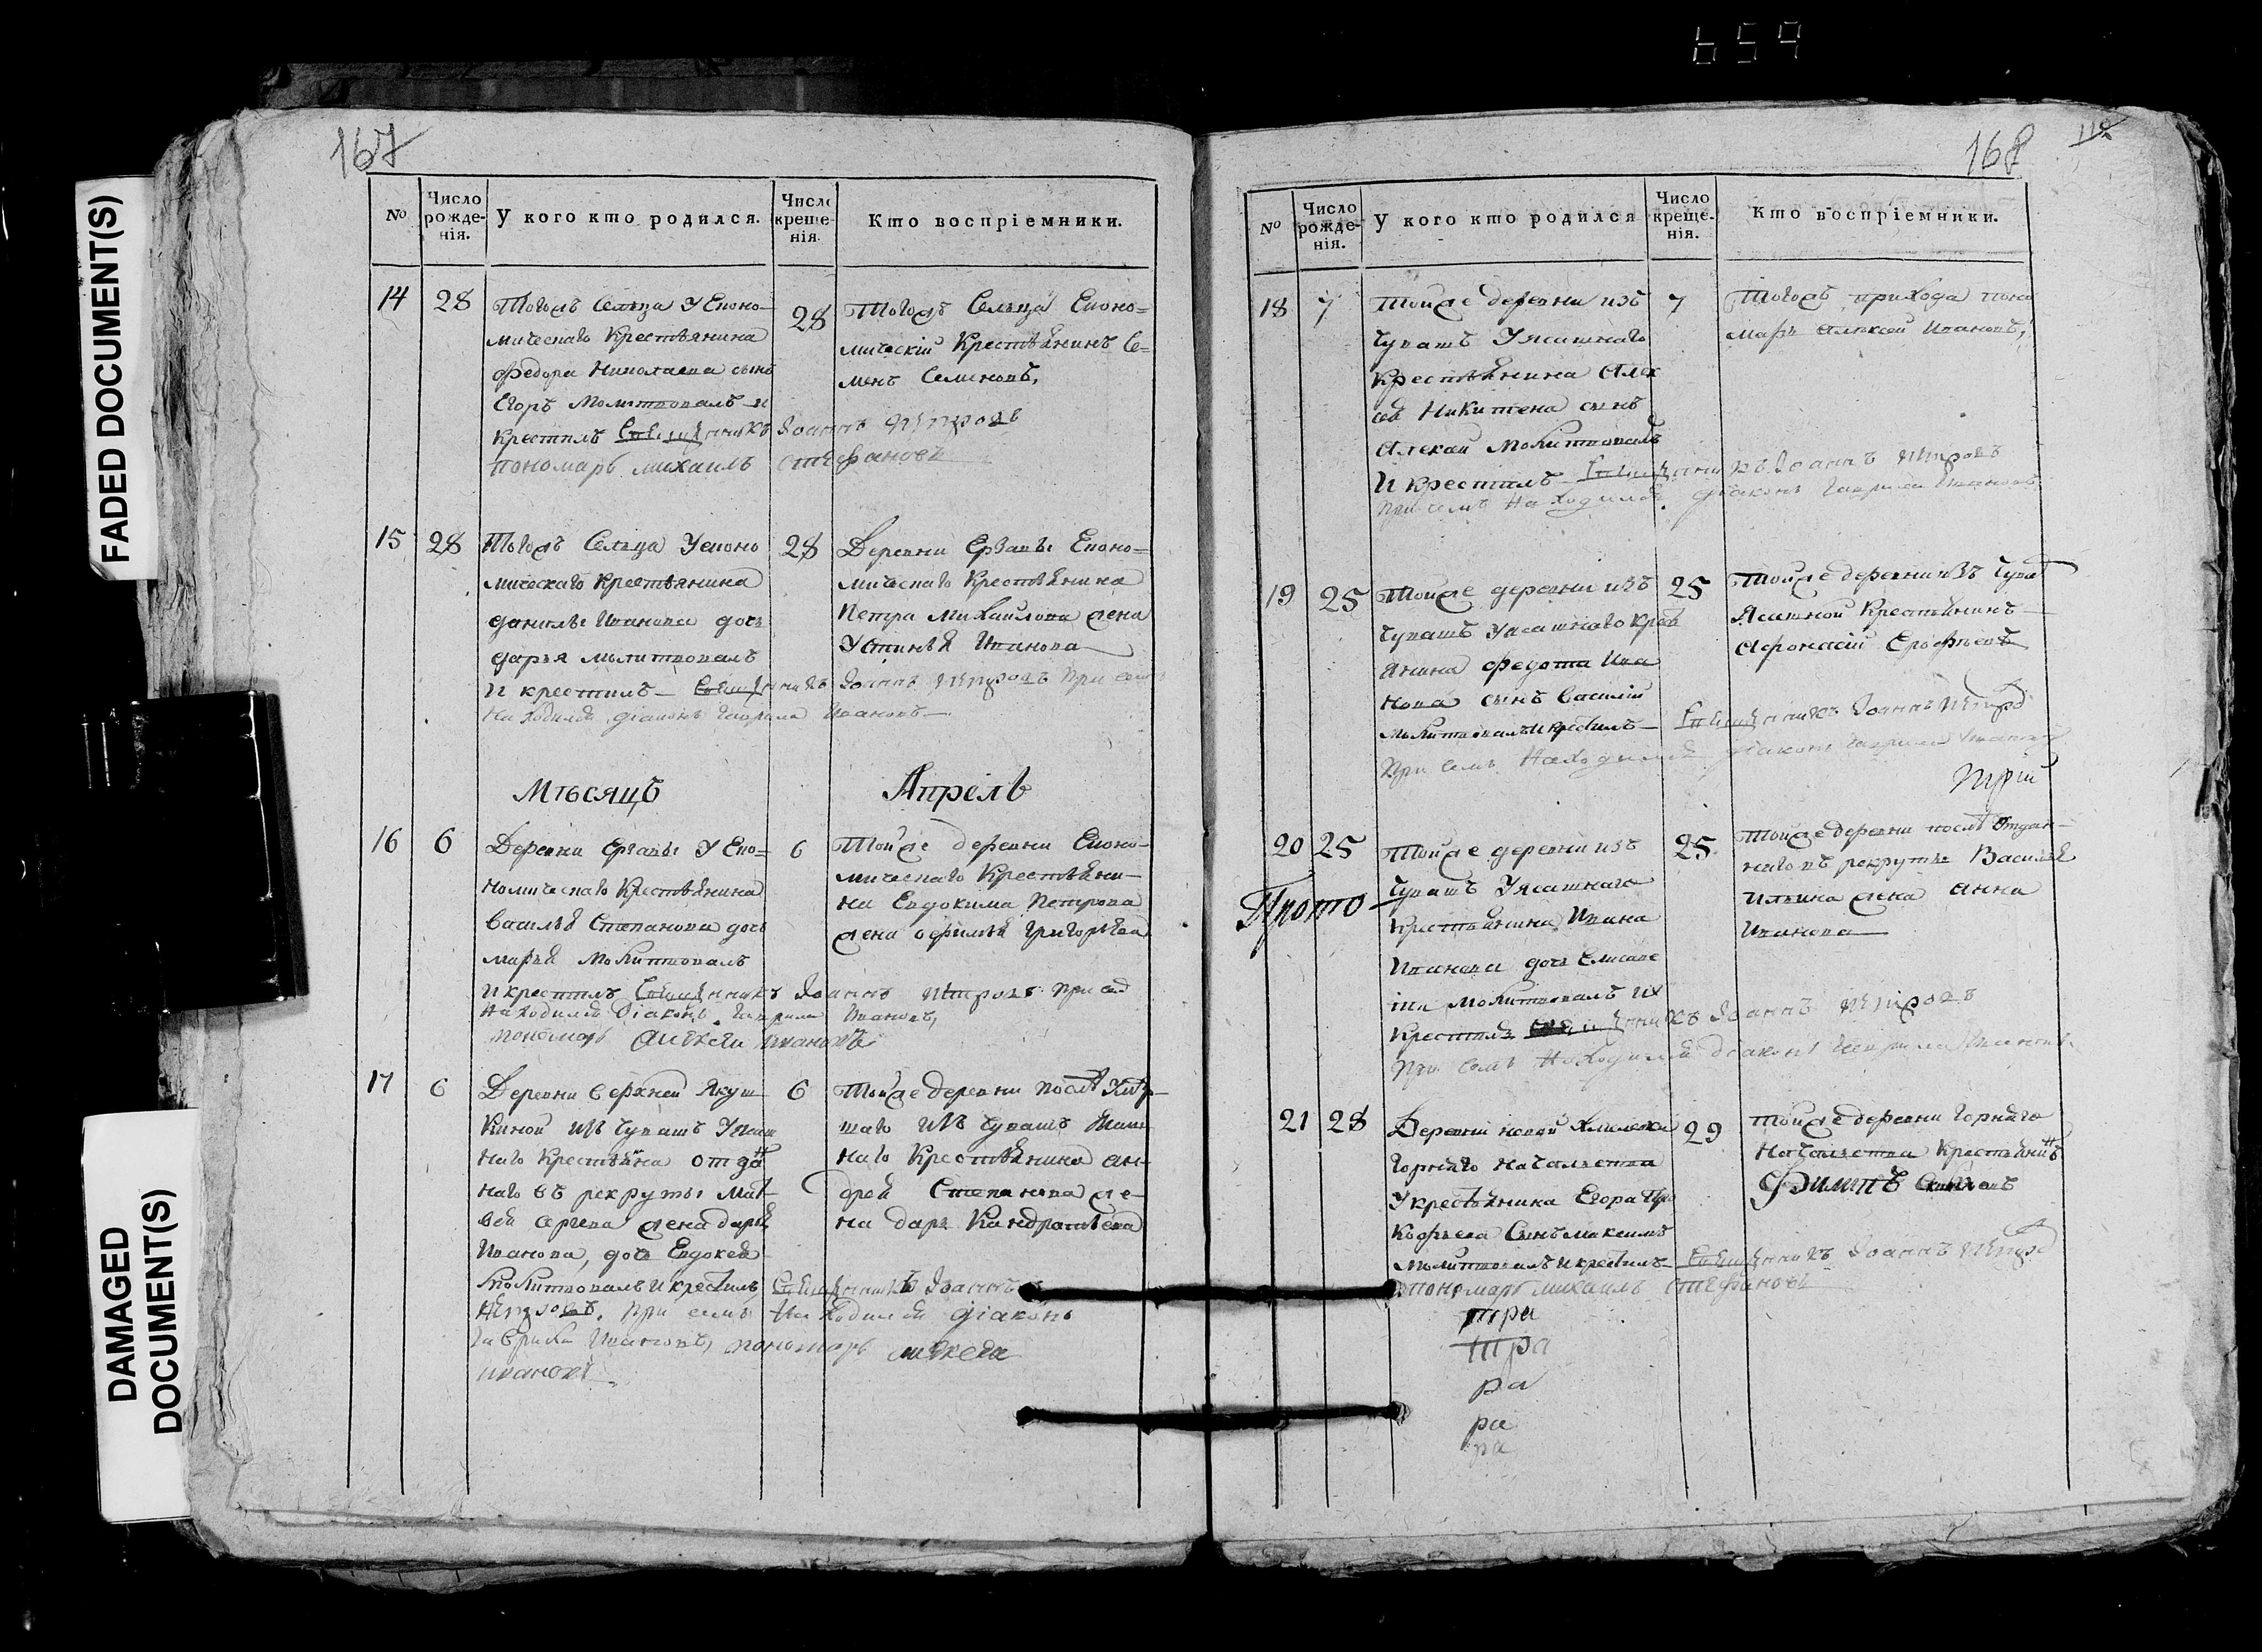 659
FADED DOCUMENT(S)
DAMAGED DOCUMENT(S)
167
№
Число рожде-нія.
У кого кто родился.
Число креще-нія.
Кто воспріемники.
14
28
Тогожъ Сельца У Еконо-
мическаго Крестьянина
Федора Николаева сынъ
Егоръ молитвовалъ и
крестилъ Священникъ Іоаннъ Петровъ
пономарь михаилъ стефановъ
28
Тогожъ Сельца Еконо-
мическій Крестьянинъ Се-
менъ Семеновъ,
15
28
Тогожъ Сельца У еконо
мическаго Крестьянина
данилы Иванова дочь
дарья молитвовалъ
и крестилъ Священникъ Іоаннъ Петровъ При семъ
находился діаконъ Гаврила Ивановъ
28
Деревни Ерзавы Еконо-
мическаго Крестьянина
Петра Михайлова жена
Устинья Иванова
Мѣсяцъ Апрель
16
6
Деревни Ерзавы У Еко-
номическаго Крестьянина
Василья Степанова дочь
марья молитвовалъ
и крестилъ Священникъ Іоаннъ Петровъ при сем
находился діаконъ Гаврила Ивановъ,
пономарь Алексѣи ивановъ
6
Тойже деревни Еконо-
мическаго Крестьяни-
на Евдокима Петрова
жена офимья Григорьева
17
6
Деревни верхней Якуш
киной изъ Чувашъ Уясаш
наго Крестьяна отдан
наго въ рекруты Мат-
вея Сергева жена дарья
Иванова, дочь Евдокея
молитвовалъ и крестилъ Священникъ Іоаннъ
Петровъ. При семъ находился діаконъ
Гаврила Ивановъ, пономарь алексеи
ивановъ
6
Тойже деревни после Умер-
шаго изъ Чувашъ Ясаш
наго Крестьянина ан-
дрея Степанова же-
на дарья Кандратьева
168
118
№
Число рожде-нія.
У кого кто родился
Число креще-нія.
Кто воспріемники.
18
7
Тойже деревни изъ
Чувашъ Уясашнаго
Крестьянина Алек
сея Никитена сынъ
Алексей молитвовалъ
и крестилъ Священникъ Іоаннъ Петровъ
При семъ находился діаконъ Гаврила Ивановъ
7
Тогожъ прихода поно
марь Алексей Ивановъ,
19
25
Тойже деревни изъ
Чувашъ Уясашнаго Крест
янина Федота Ива
нова сынъ Василій
молитвовалъ и крестилъ Священникъ Іоаннъ Петров
При семъ находился діаконъ Гаврила Ивановъ
25
Тойже деревни изъ Чуваш
Ясашной Крестьянинъ
Афонасій Ерофеевъ
20
25
Тойже деревни изъ
Чувашъ Уясашнаго
Крестьянина Ивана
Иванова дочь Елисаве
та молитвовалъ и
Крестилъ Священникъ Іоаннъ Петровъ
При семъ находился діаконъ Гаврила Ивановъ
25
Тойже деревни после отдан-
наго въ рекруты Василья
Ильина жена анна
Иванова
21
28
Деревни новой Хмелевки
Горнаго Начальства
У крестьянина Егора Про
кофьева Сынъ максимъ
молитвовалъ и крестилъ Священникъ Іоаннъ Петров
пономарь михаилъ стефановъ
29
Тойже деревни Горнаго
Начальства Крестьянинъ
Филипъ
тра
тра
ра
ра
ра